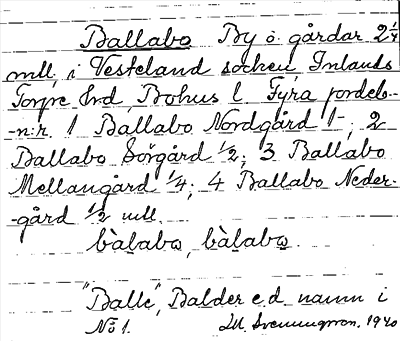 Ballabo By o. gårdar 2 1/4
mtl. i Vesteland socken Inlands
Torpe hrd Bohus l. Fyra jordeb-
-n:r. 1 Ballabo Nordgård 1-; 2
Ballabo Sörgård 1/2; 3 Ballabo
Mellangård 1/4; 4 Ballabo Neder-
-gård 1/2 mtl.
bàlabo, bàlabo.
"Balle", Balder e.d. namn i
No 1. 1940